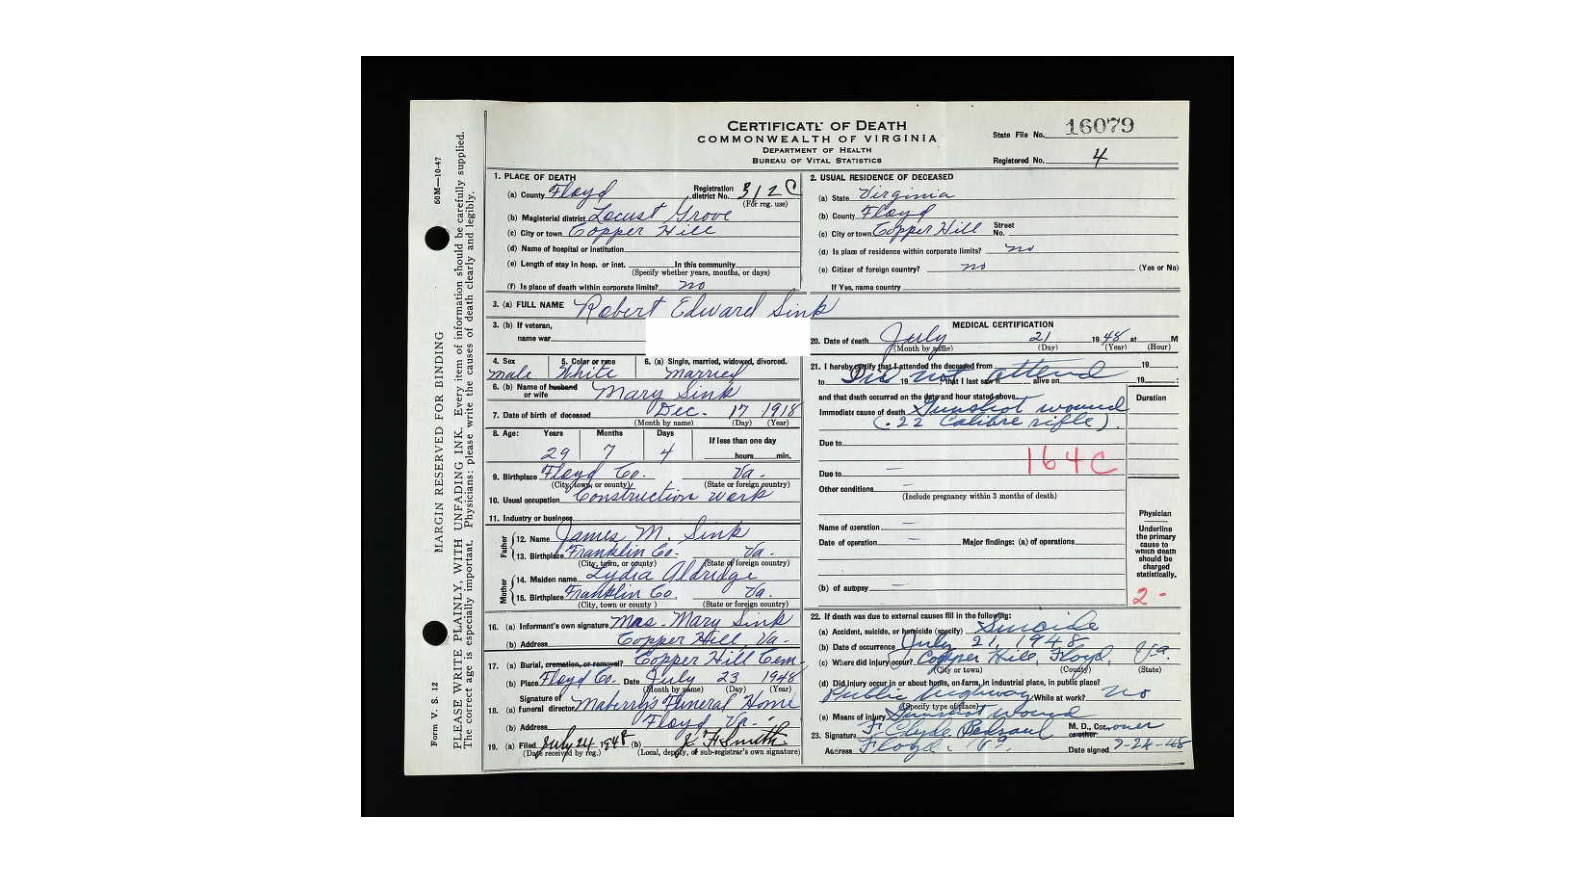 CERTIFICATE OF DEATH
COMMONWEALTH OF VIRGINIA
DEPARTMENT OF HEALTH
BUREAU OF VITAL STATISTICS
State File No. 16079
Registered No. 4
Form V. S. 12 60M—10-47
MARGIN RESERVED FOR BINDING
PLEASE WRITE PLAINLY, WITH UNFADING INK. Every item of information should be carefully supplied.
The correct age is especially important. Physicians: please write the causes of death clearly and legibly.
1. PLACE OF DEATH
(a) County Floyd Registration district No. 312C
(For reg. use)
(b) Magisterial district Locust Grove
(c) City or town Copper Hill
(d) Name of hospital or institution
(e) Length of stay in hosp. or inst. In this community
(Specify whether years, months, or days)
(f) Is place of death within corporate limits? no
2. USUAL RESIDENCE OF DECEASED
(a) State Virginia
(b) County Floyd
(c) City or town Copper Hill Street No.
(d) Is place of residence within corporate limits? no
(e) Citizen of foreign country? no (Yes or No)
If Yes, name country
3. (a) FULL NAME Robert Edward Sink
3. (b) If veteran,
name war
4. Sex male 5. Color or race White 6. (a) Single, married, widowed, divorced. Married
6. (b) Name of husband or wife Mary Sink
7. Date of birth of deceased Dec. 17 1918
(Month by name) (Day) (Year)
8. Age: Years Months Days If less than one day
29 7 4 hours min.
9. Birthplace Floyd Co. Va.
(City, town, or county) (State or foreign country)
10. Usual occupation Construction work
11. Industry or business
Father
12. Name James M. Sink
13. Birthplace Franklin Co. Va.
(City, town, or county) (State or foreign country)
Mother
14. Maiden name Lydia Aldridge
15. Birthplace Franklin Co. Va.
(City, town or county) (State or foreign country)
16. (a) Informant's own signature Mrs. Mary Sink
(b) Address Copper Hill, Va.
17. (a) Burial, cremation, or removal? Copper Hill Cem.
(b) Place Floyd Co. Date July 23 1948
(Month by name) (Day) (Year)
18. (a) Signature of funeral director Maberry's Funeral Home
(b) Address Floyd Va.
19. (a) Filed July 24 1948 (b) J. F. Smith
(Date received by reg.) (Local, deputy, or sub-registrar's own signature)
MEDICAL CERTIFICATION
20. Date of death July 21 1948 at M
(Month by name) (Day) (Year) (Hour)
21. I hereby certify that I attended the deceased from 19
to 19 that I last saw alive on 19 :
Did not attend
and that death occurred on the date and hour stated above. Duration
Immediate cause of death Gunshot wound
(.22 Calibre rifle).
Due to
164C
Due to —
Other conditions —
(Include pregnancy within 3 months of death)
Name of operation —
Date of operation — Major findings: (a) of operations
(b) of autopsy —
Physician
Underline the primary cause to which death should be charged statistically.
2 -
22. If death was due to external causes fill in the following:
(a) Accident, suicide, or homicide (specify) Suicide
(b) Date of occurrence July 21, 1948
(c) Where did injury occur? Copper Hill, Floyd, Va.
(City or town) (County) (State)
(d) Did injury occur in or about home, on farm, in industrial place, in public place?
Public highway While at work? no
(Specify type of place)
(e) Means of injury Gunshot wound
23. Signature F. Clyde Bedsaul M. D., Coroner or other
Address Floyd, Va. Date signed 7-24-48